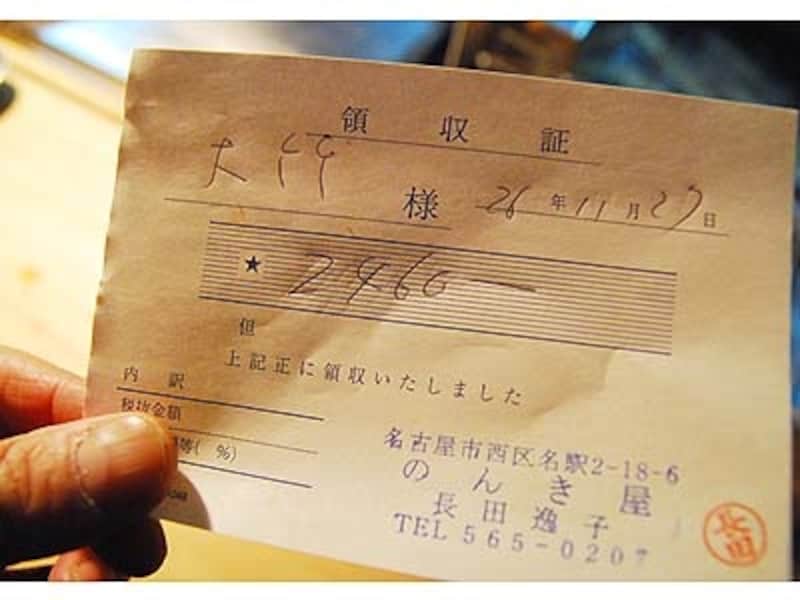 領収証
大竹 様 26年11月27日
★ 2460-
但
上記正に領収いたしました
内訳
税抜金額
等( %)
名古屋市西区名駅2-18-6
のんき屋
長田逸子
TEL 565-0207
長田